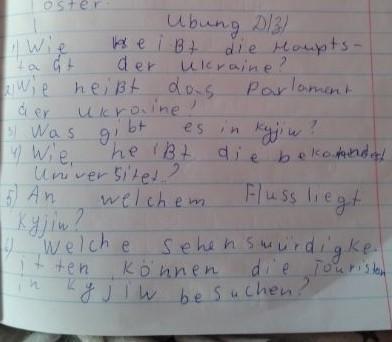 Übung D|3|
1) Wie heißt die Haupts-
tadt der Ukraine?
2) Wie heißt das Parlament
der Ukraine?
3) Was gibt es in Kyjiw?
4) Wie heißt die bekannte
Universitet?
5) An welchem Fluss liegt
Kyjiw?
6) Welche Sehenswürdigke-
itten können die Touristen
in Kyjiw besuchen?